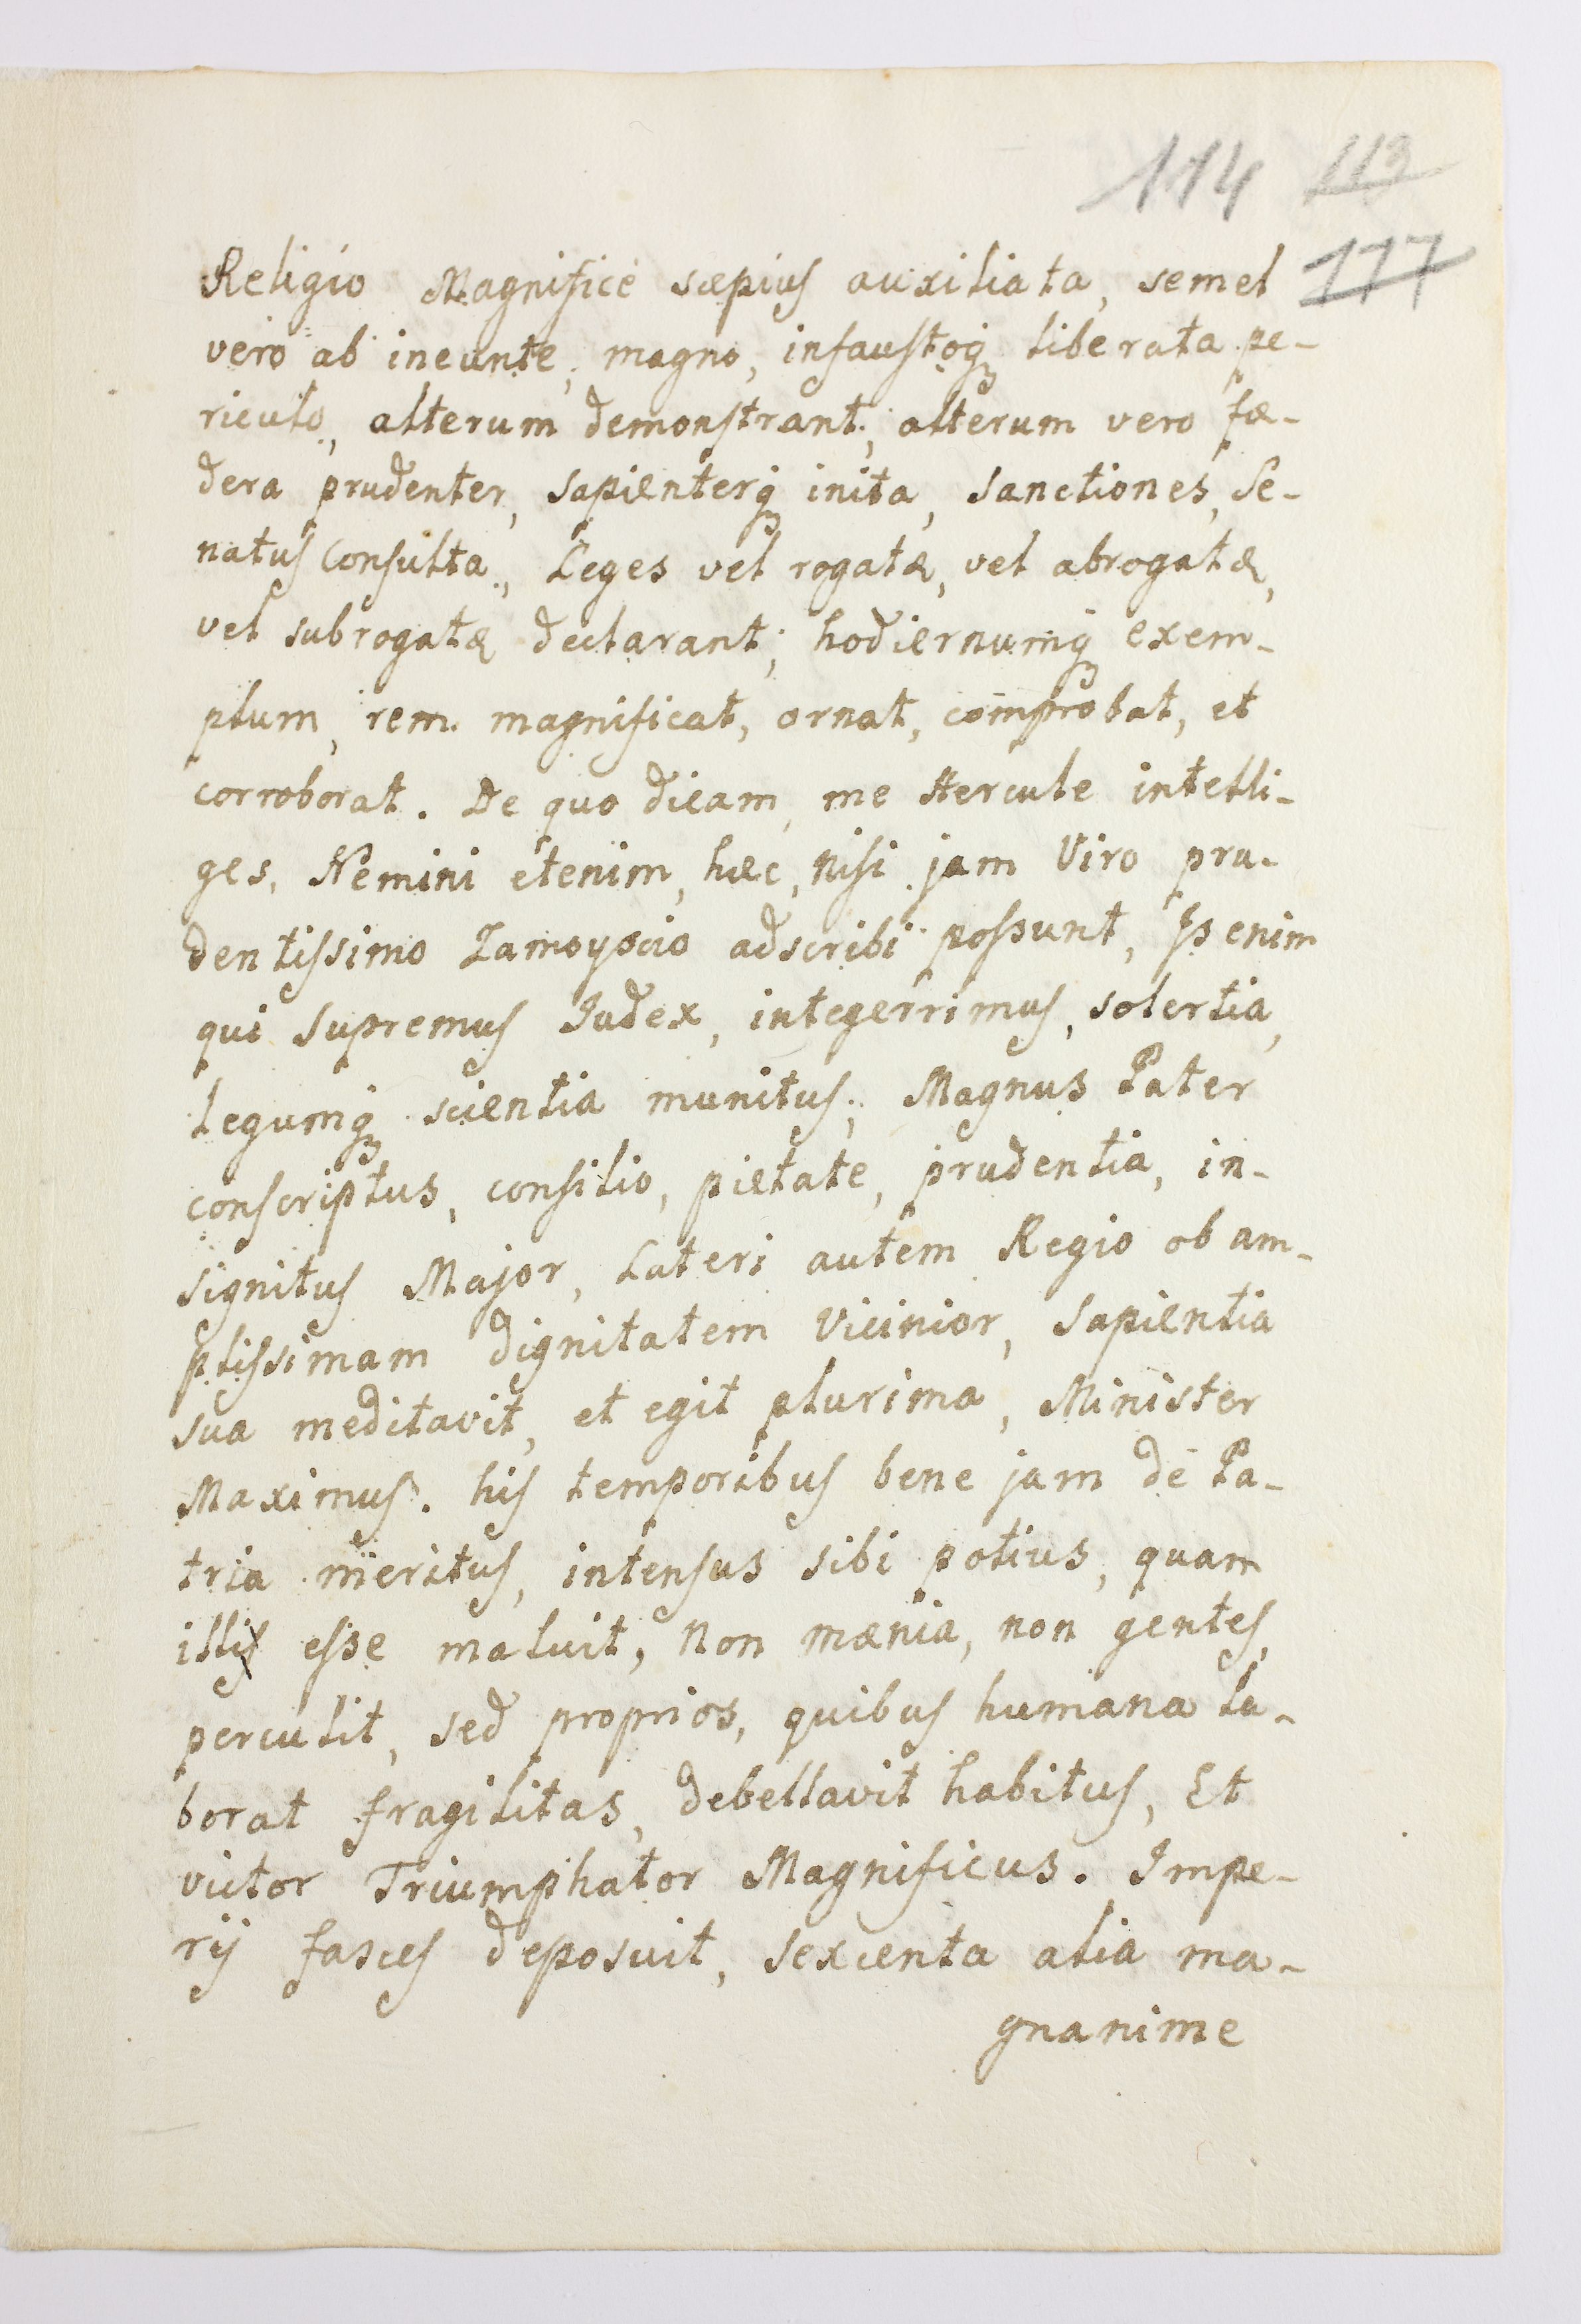 114 113
177
Religio Magnificè sæpius auxiliata, semel
vero ab ineunte, magno, infaustoq₃ liberata pe-
riculo, alterum demonstrant; alterum vero fœ-
dera prudenter, sapienterq₃ inita, Sanctiones, Se-
natus Consulta, Leges vel rogatæ, vel abrogatæ,
vel subrogatæ declarant; hodiernumq₃ exem-
plum, rem magnificat, ornat, comprobat, et
corroborat. De quo dicam, me Hercule intelli-
ges, Nemini etenim, hæc, nisi jam Viro pru-
dentissimo Zamoyscio adscribi possunt, Is enim
qui Supremus Judex, integerrimus, solertia,
Legumq₃ scientia munitus; Magnus Pater
conscriptus, consilio, pietate, prudentia, in-
signitus Major, Lateri autem Regio ob am-
plissimam dignitatem Vicinior, Sapientia
sua meditavit, et egit plurima, Minister
Maximus. his temporibus bene jam de Pa-
tria meritus, intensus sibi potius, quam
illis esse maluit, Non mænia, non gentes,
perculit, sed proprios, quibus humana la-
borat fragilitas, debellavit habitus, Et
victor Triumphator Magnificus. Impe-
rij fasces deposuit, sexcenta alia ma-
gnanime